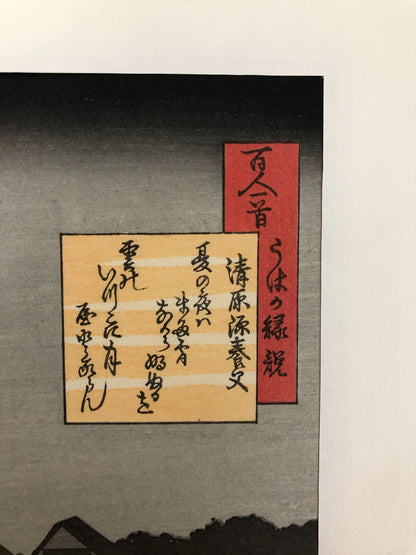 百人一首
うはか縁説
清原深養父
夏の夜ハ
また宵
なから明ぬるを
雲の
いつこに月
やとるらん